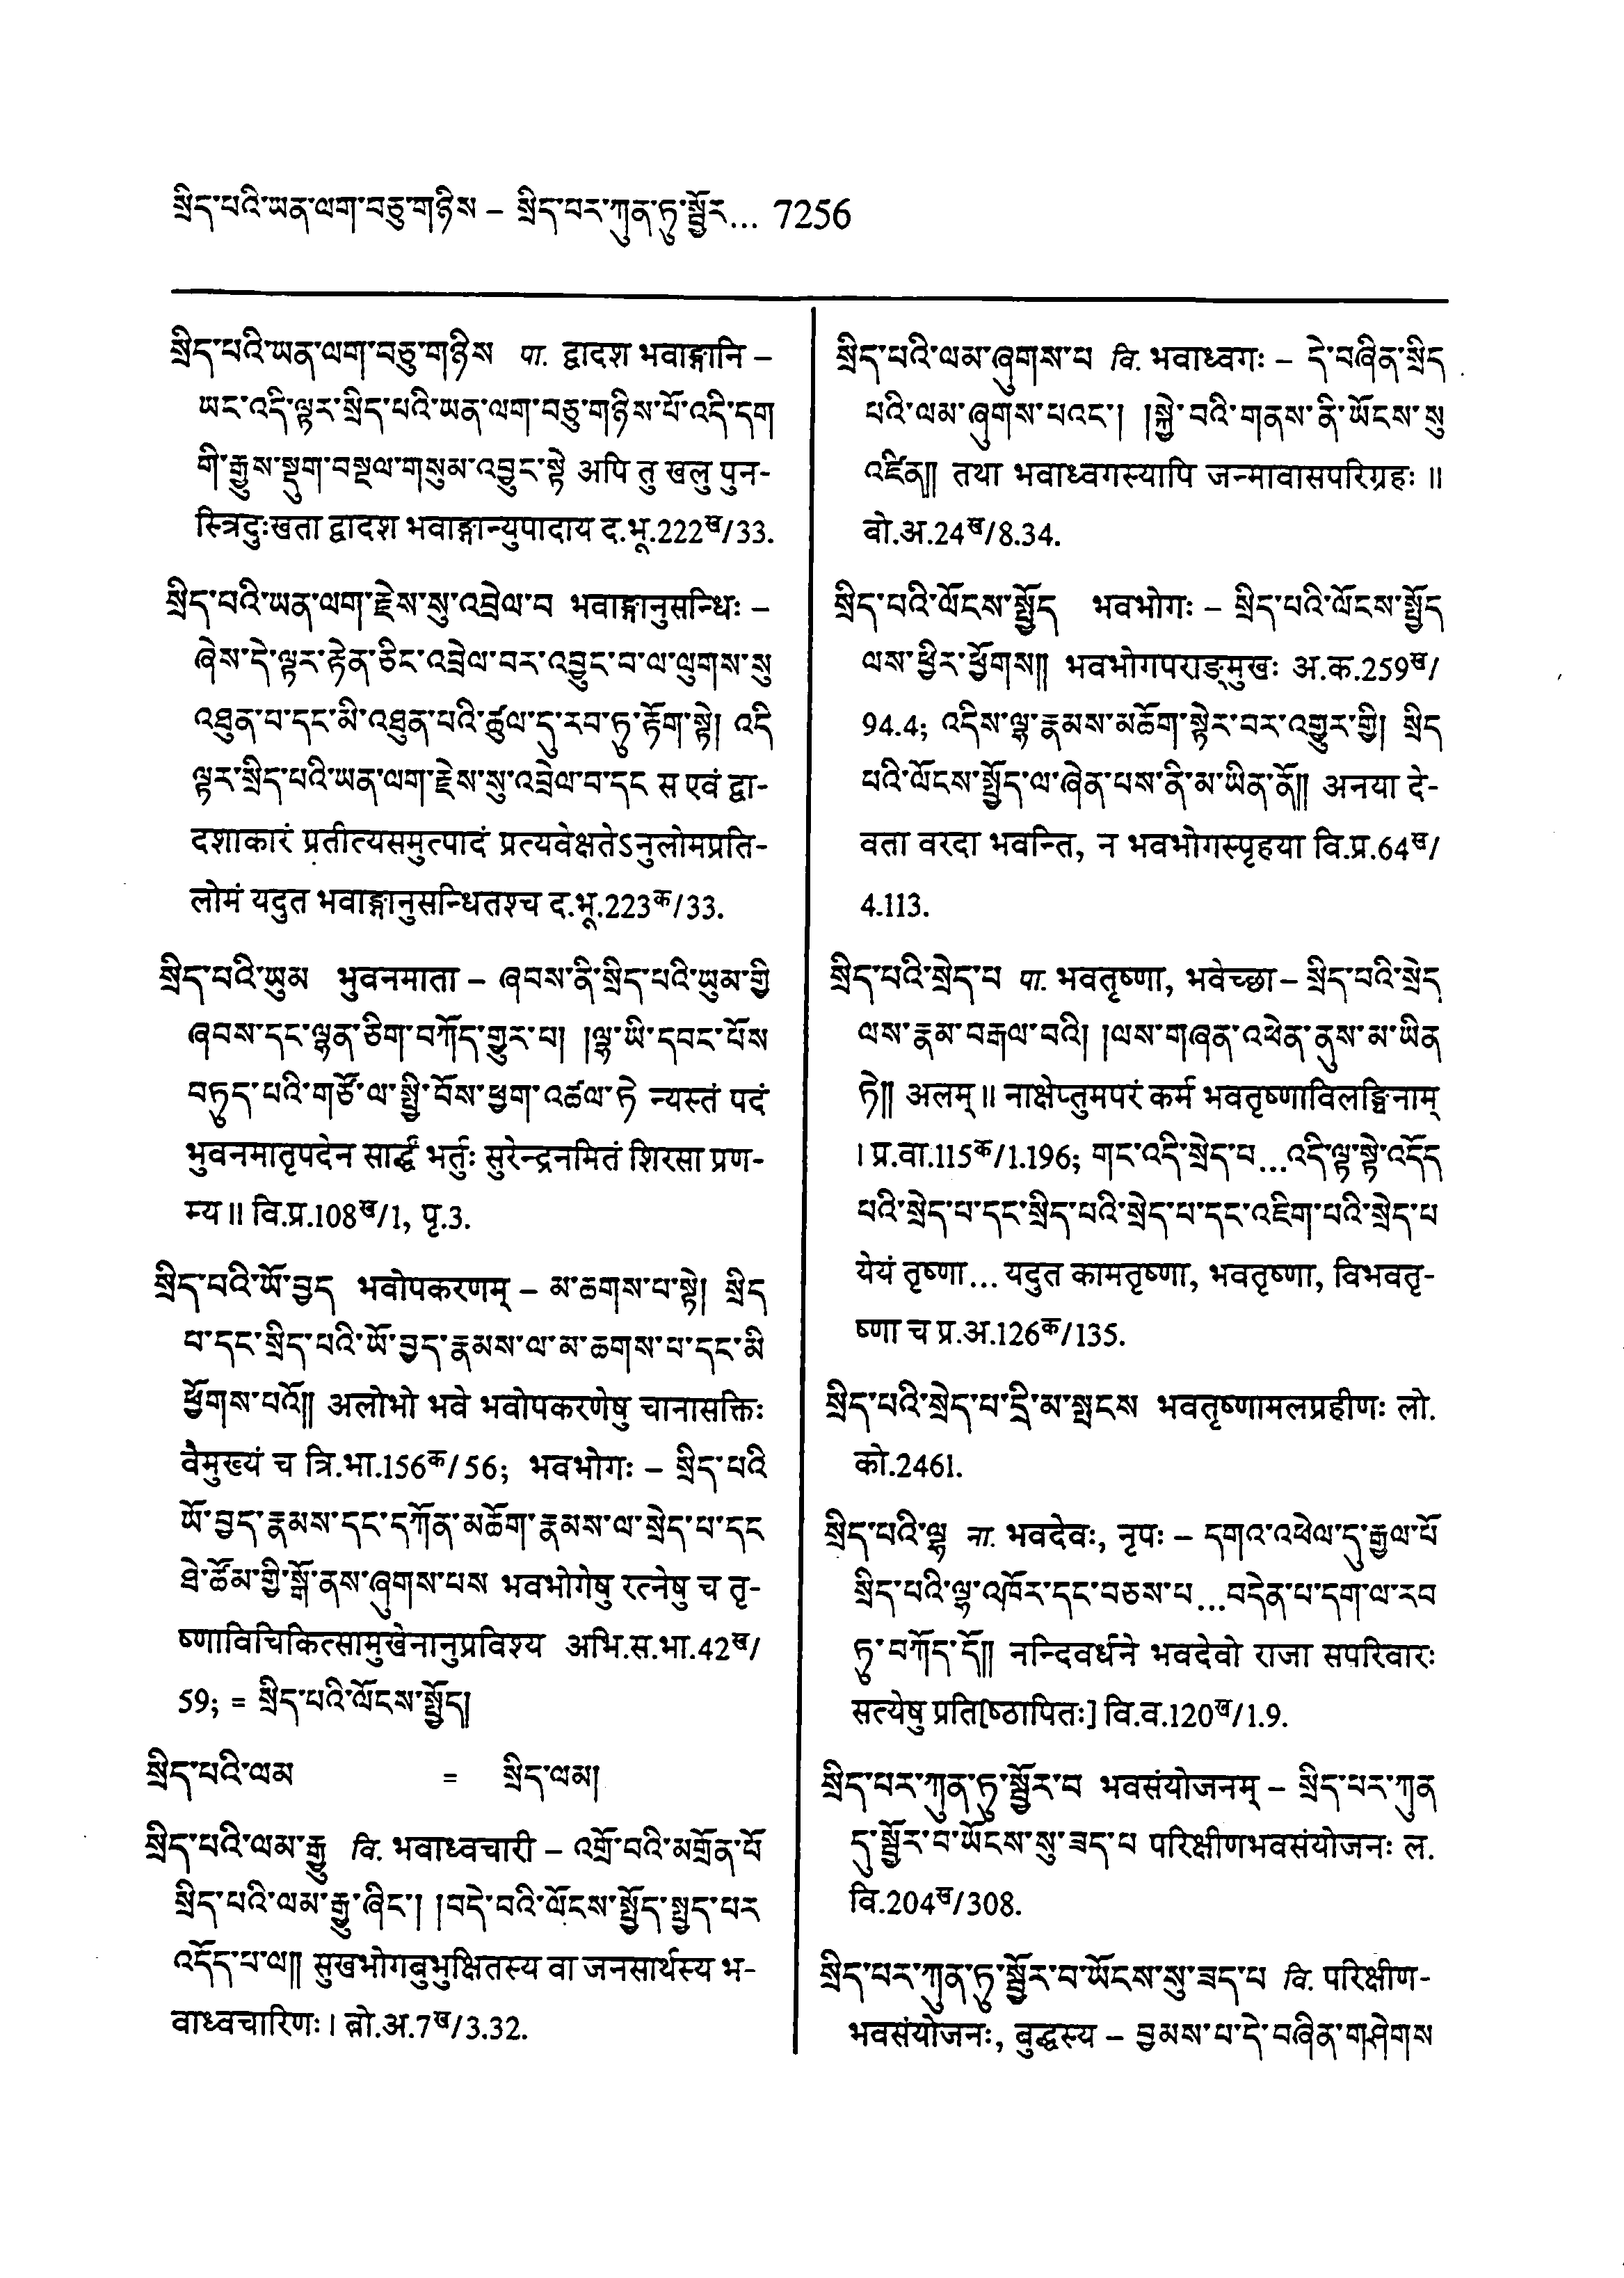 སྲིད་པའི་ཡན་ལག་བཅུ་གཉིས – སྲིད་པར་ཀུན་ཏུ་སྦྱོར... 7256
སྲིད་པའི་ཡན་ལག་བཅུ་གཉིས पा. द्वादश भवाङ्गानि –
ཡང་འདི་ལྟར་སྲིད་པའི་ཡན་ལག་བཅུ་གཉིས་པོ་འདི་དག
གི་རྒྱུས་སྡུག་བསྔལ་གསུམ་འབྱུང་སྟེ अपि तु खलु पुन-
स्त्रिदुःखता द्वादश भवाङ्गान्युपादाय द.भू.222ख/33.
སྲིད་པའི་ཡན་ལག་རྗེས་སུ་འབྲེལ་བ भवाङ्गानुसन्धिः –
ཞེས་དེ་ལྟར་རྟེན་ཅིང་འབྲེལ་བར་འབྱུང་བ་ལ་ལུགས་སུ
འཐུན་བ་དང་མི་འཐུན་པའི་ཚུལ་དུ་རབ་ཏུ་རྟོག་སྟེ། འདི
ལྟར་སྲིད་པའི་ཡན་ལག་རྗེས་སུ་འབྲེལ་བ་དང स एवं द्वा-
दशाकारं प्रतीत्यसमुत्पादं प्रत्यवेक्षतेऽनुलोमप्रति-
लोमं यदुत भवाङ्गानुसन्धितश्च द.भू.223क/33.
སྲིད་པའི་ཡུམ भुवनमाता – ཞབས་ནི་སྲིད་པའི་ཡུམ་གྱི
ཞབས་དང་ལྷན་ཅིག་བཀོད་གྱུར་པ། །ལྷ་ཡི་དབང་པོས
བཏུད་པའི་གཙོ་ལ་སྤྱི་བོས་ཕྱག་འཚལ་ཏེ न्यस्तं पदं
भुवनमातृपदेन सार्द्धं भर्तुः सुरेन्द्रनमितं शिरसा प्रण-
म्य ॥ वि.प्र.108ख/1, पृ.3.
སྲིད་པའི་ཡོ་བྱད भवोपकरणम् – མ་ཆགས་པ་སྟེ། སྲིད
པ་དང་སྲིད་པའི་ཡོ་བྱད་རྣམས་ལ་མ་ཆགས་པ་དང་མི
ཕྱོགས་པའོ༎ अलोभो भवे भवोपकरणेषु चानासक्तिः
वैमुख्यं च त्रि.भा.156क/56; भवभोगः – སྲིད་པའི
ཡོ་བྱད་རྣམས་དང་དཀོན་མཆོག་རྣམས་ལ་སྲེད་པ་དང
ཐེ་ཚོམ་གྱི་སྒོ་ནས་ཞུགས་པས भवभोगेषु रत्नेषु च तृ-
ष्णाविचिकित्सामुखेनानुप्रविश्य अभि.स.भा.42ख/
59; = སྲིད་པའི་ལོངས་སྤྱོད།
སྲིད་པའི་ལམ = སྲིད་ལམ།
སྲིད་པའི་ལམ་རྒྱུ वि. भवाध्वचारी – འགྲོ་བའི་མགྲོན་པོ
སྲིད་པའི་ལམ་རྒྱུ་ཞིང་། །བདེ་བའི་ལོངས་སྤྱོད་སྤྱད་པར
འདོད་པ་ལ༎ सुखभोगबुभुक्षितस्य वा जनसार्थस्य भ-
वाध्वचारिणः । बो.अ.7ख/3.32.
སྲིད་པའི་ལམ་ཞུགས་པ वि. भवाध्वगः – དེ་བཞིན་སྲིད
པའི་ལམ་ཞུགས་པའང་། །སྐྱེ་བའི་གནས་ནི་ཡོངས་སུ
འཛིན༎ तथा भवाध्वगस्यापि जन्मावासपरिग्रहः ॥
बो.अ.24ख/8.34.
སྲིད་པའི་ལོངས་སྤྱོད भवभोगः – སྲིད་པའི་ལོངས་སྤྱོད
ལས་ཕྱིར་ཕྱོགས༎ भवभोगपराङ्मुखः अ.क.259ख/
94.4; འདིས་ལྷ་རྣམས་མཆོག་སྟེར་བར་འགྱུར་གྱི། སྲིད
པའི་ལོངས་སྤྱོད་ལ་ཞེན་པས་ནི་མ་ཡིན་ནོ༎ अनया दे-
वता वरदा भवन्ति, न भवभोगस्पृहया वि.प्र.64ख/
4.113.
སྲིད་པའི་སྲེད་པ पा. भवतृष्णा, भवेच्छा – སྲིད་པའི་སྲེད
ལས་རྣམ་བརྒལ་བའི། །ལས་གཞན་འཕེན་ནུས་མ་ཡིན
ཏེ༎ अलम् ॥ नाक्षेप्तुमपरं कर्म भवतृष्णाविलङ्घिनाम्
। प्र.वा.115क/1.196; གང་འདི་སྲེད་པ...འདི་ལྟ་སྟེ་འདོད
པའི་སྲེད་པ་དང་སྲིད་པའི་སྲེད་པ་དང་འཇིག་པའི་སྲེད་པ
येयं तृष्णा... यदुत कामतृष्णा, भवतृष्णा, विभवतृ-
ष्णा च प्र.अ.126क/135.
སྲིད་པའི་སྲེད་པ་དྲི་མ་སྤངས भवतृष्णामलप्रहीणः लो.
को.2461.
སྲིད་པའི་ལྷ ना. भवदेवः, नृपः – དགའ་འཕེལ་དུ་རྒྱལ་པོ
སྲིད་པའི་ལྷ་འཁོར་དང་བཅས་པ...བདེན་པ་དག་ལ་རབ
ཏུ་བཀོད་དོ༎ नन्दिवर्धने भवदेवो राजा सपरिवारः
सत्येषु प्रति[ष्ठापितः] वि.व.120ख/1.9.
སྲིད་པར་ཀུན་ཏུ་སྦྱོར་བ भवसंयोजनम् – སྲིད་པར་ཀུན
དུ་སྦྱོར་བ་ཡོངས་སུ་ཟད་པ परिक्षीणभवसंयोजनः ल.
वि.204ख/308.
སྲིད་པར་ཀུན་ཏུ་སྦྱོར་བ་ཡོངས་སུ་ཟད་པ वि. परिक्षीण-
भवसंयोजनः, बुद्धस्य – བྱམས་པ་དེ་བཞིན་གཤེགས